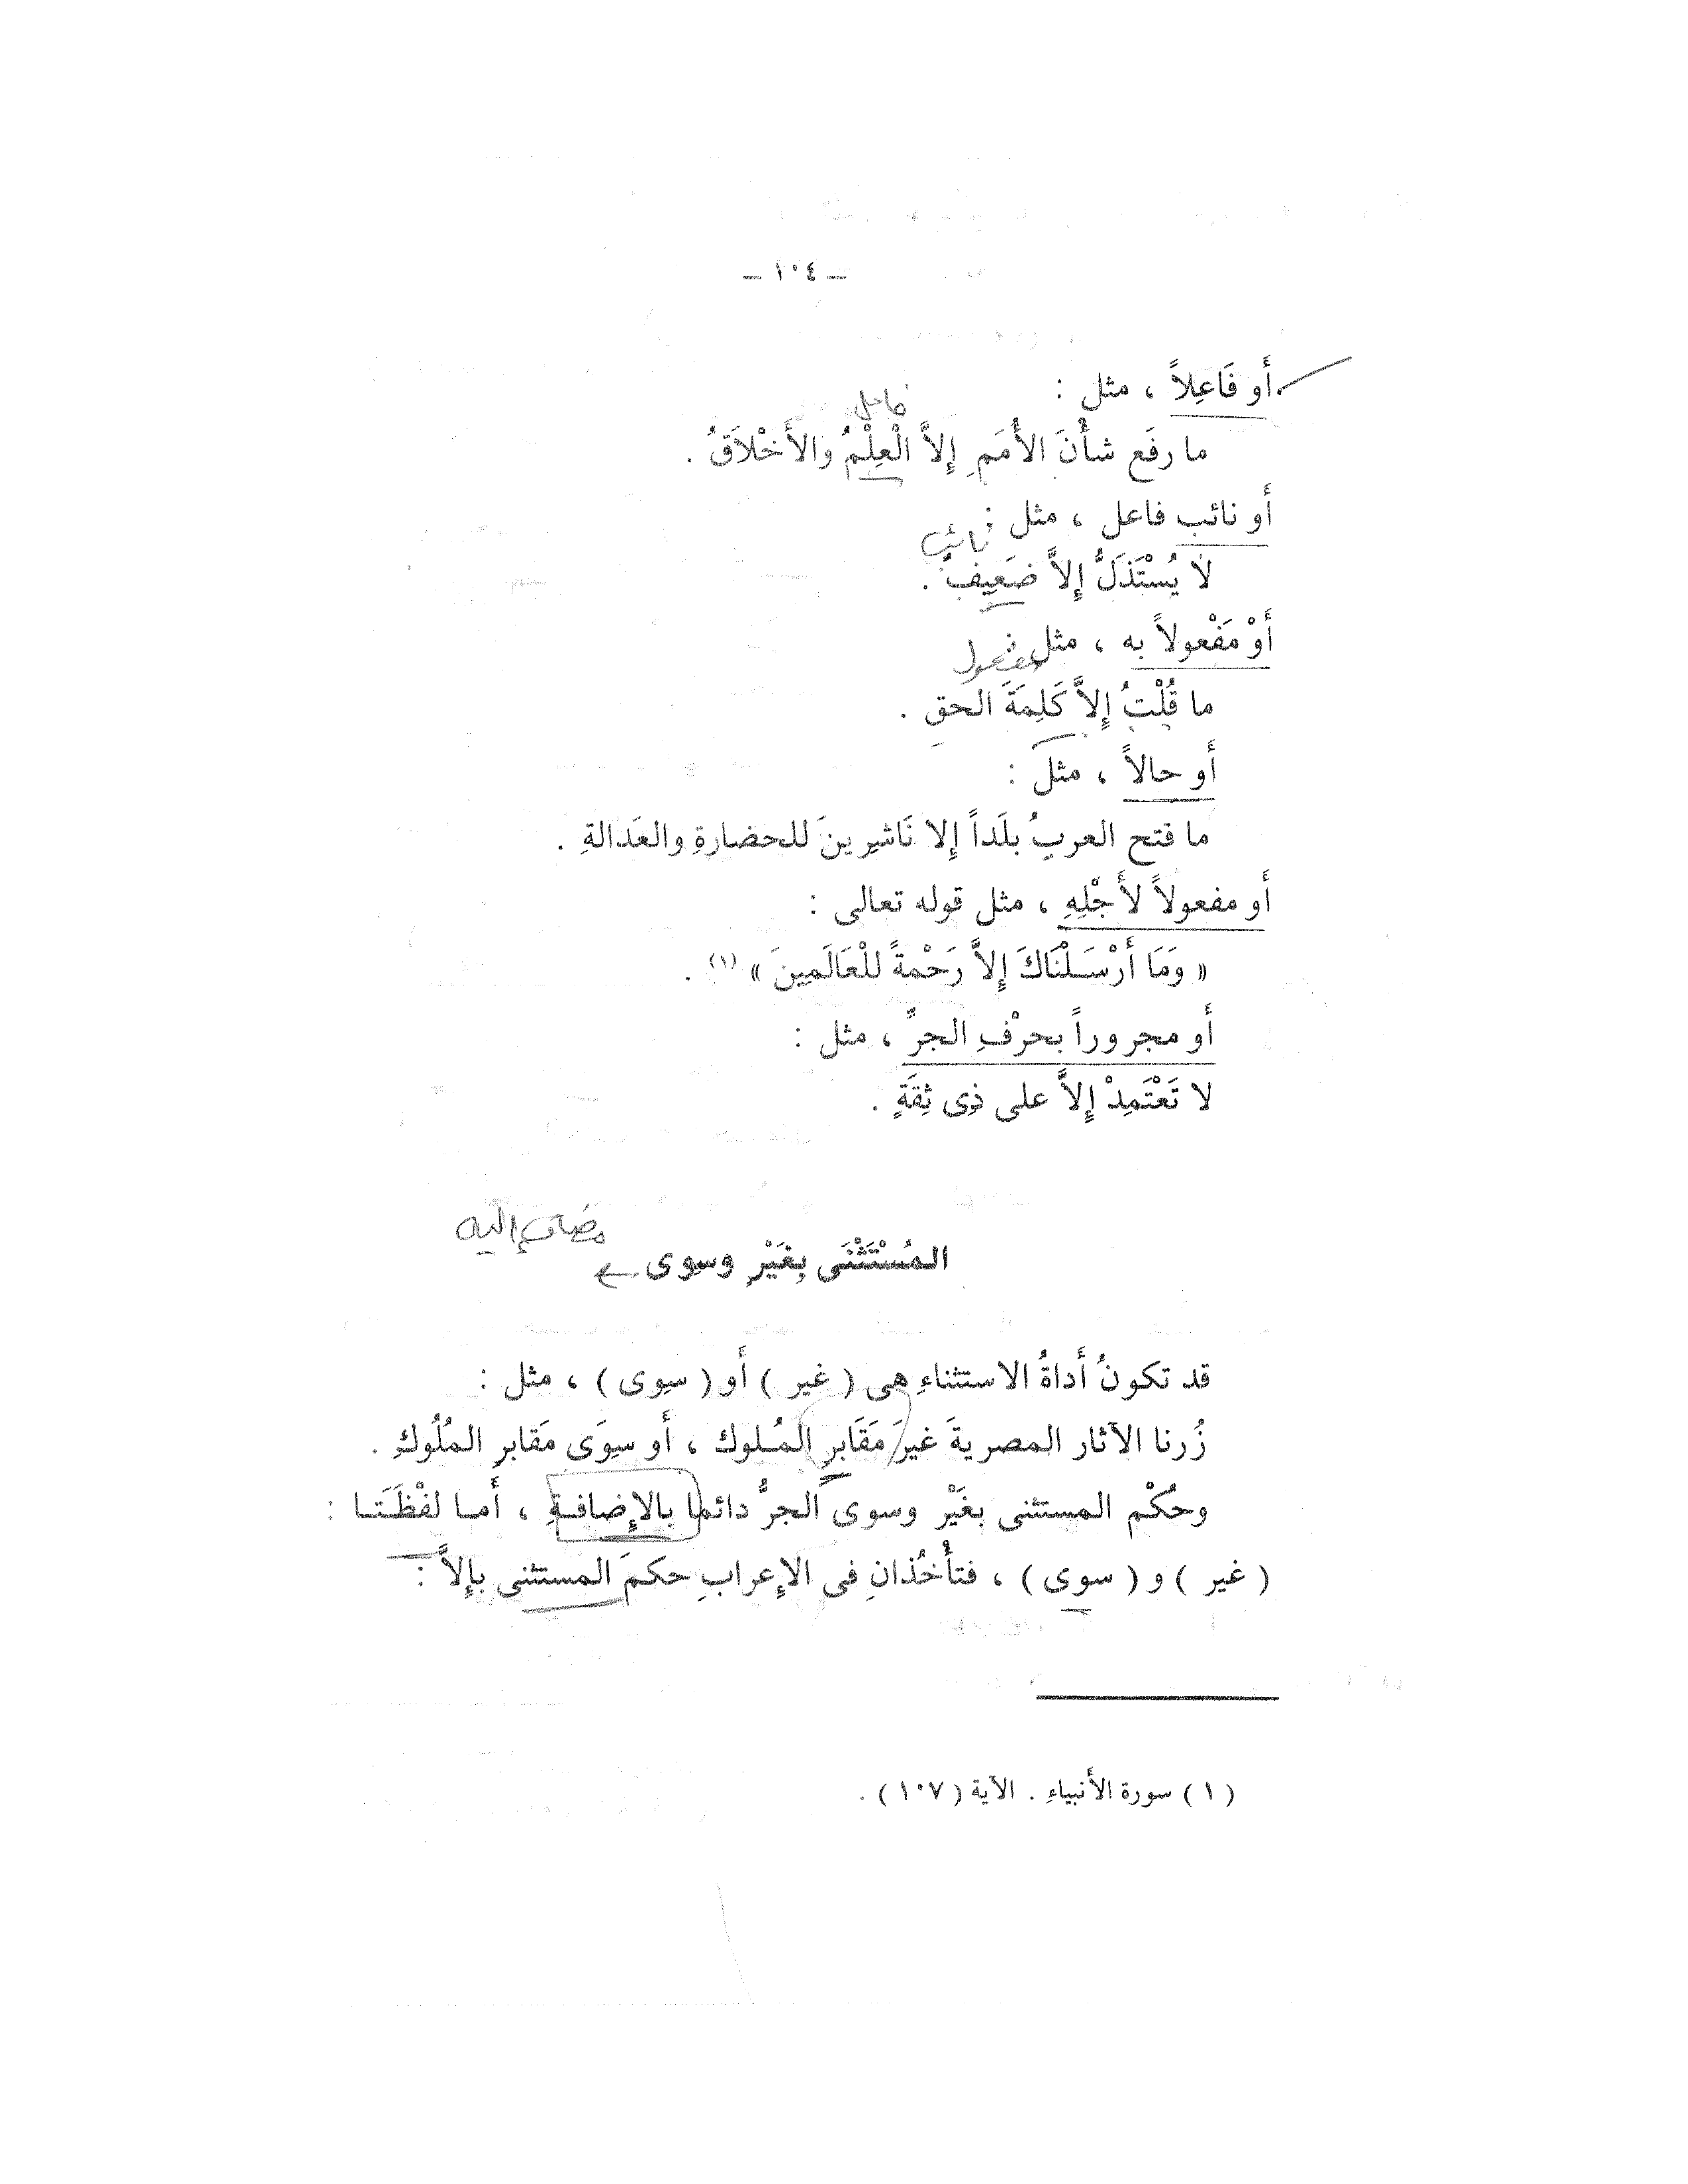 – ١٠٤ –
أَو فَاعِلاً ، مثل :
فاعل
ما رفَع شأْنَ الأُمَمِ إِلاَّ الْعِلْمُ والأَخْلاَقُ .
أَو نائب فاعل ، مثل :
نائب
لا يُسْتَذَلُّ إِلاَّ ضَعِيفٌ .
أَوْ مَفْعولاً به ، مثل :
مفعول
ما قُلْتُ إِلاَّ كَلِمَةَ الحقِ .
أَو حالاً ، مثل :
ما فتح العربُ بلَداً إِلا نَاشِرِينَ للحضارةِ والعَدالةِ .
أَو مفعولاً لأَجْلِهِ ، مثل قوله تعالى :
« وَمَا أَرْسَلْنَاكَ إِلاَّ رَحْمةً للْعَالَمِينَ » (١) .
أَو مجروراً بحرْفِ الجرِّ ، مثل :
لا تَعْتَمِدْ إِلاَّ على ذِى ثِقَةٍ .
مضاف إليه
المُسْتَثْنَى بِغَيْرِ وسِوى
قد تكونُ أَداةُ الاستثناءِ هى ( غير ) أَو ( سِوى ) ، مثل :
زُرنا الآثار المصريةَ غيرَ مَقَابِرِ المُلوك ، أَو سِوَى مَقابرِ المُلُوكِ .
وحُكْم المستثنى بغَيْر وسوى الجرُّ دائما بالإِضافةِ ، أَما لفْظَتا :
( غير ) و ( سوى ) ، فتأْخُذانِ فى الإِعرابِ حكمَ المستثنى بإِلاَّ :
( ١ ) سورة الأَنبياءِ . الآية ( ١٠٧ ) .